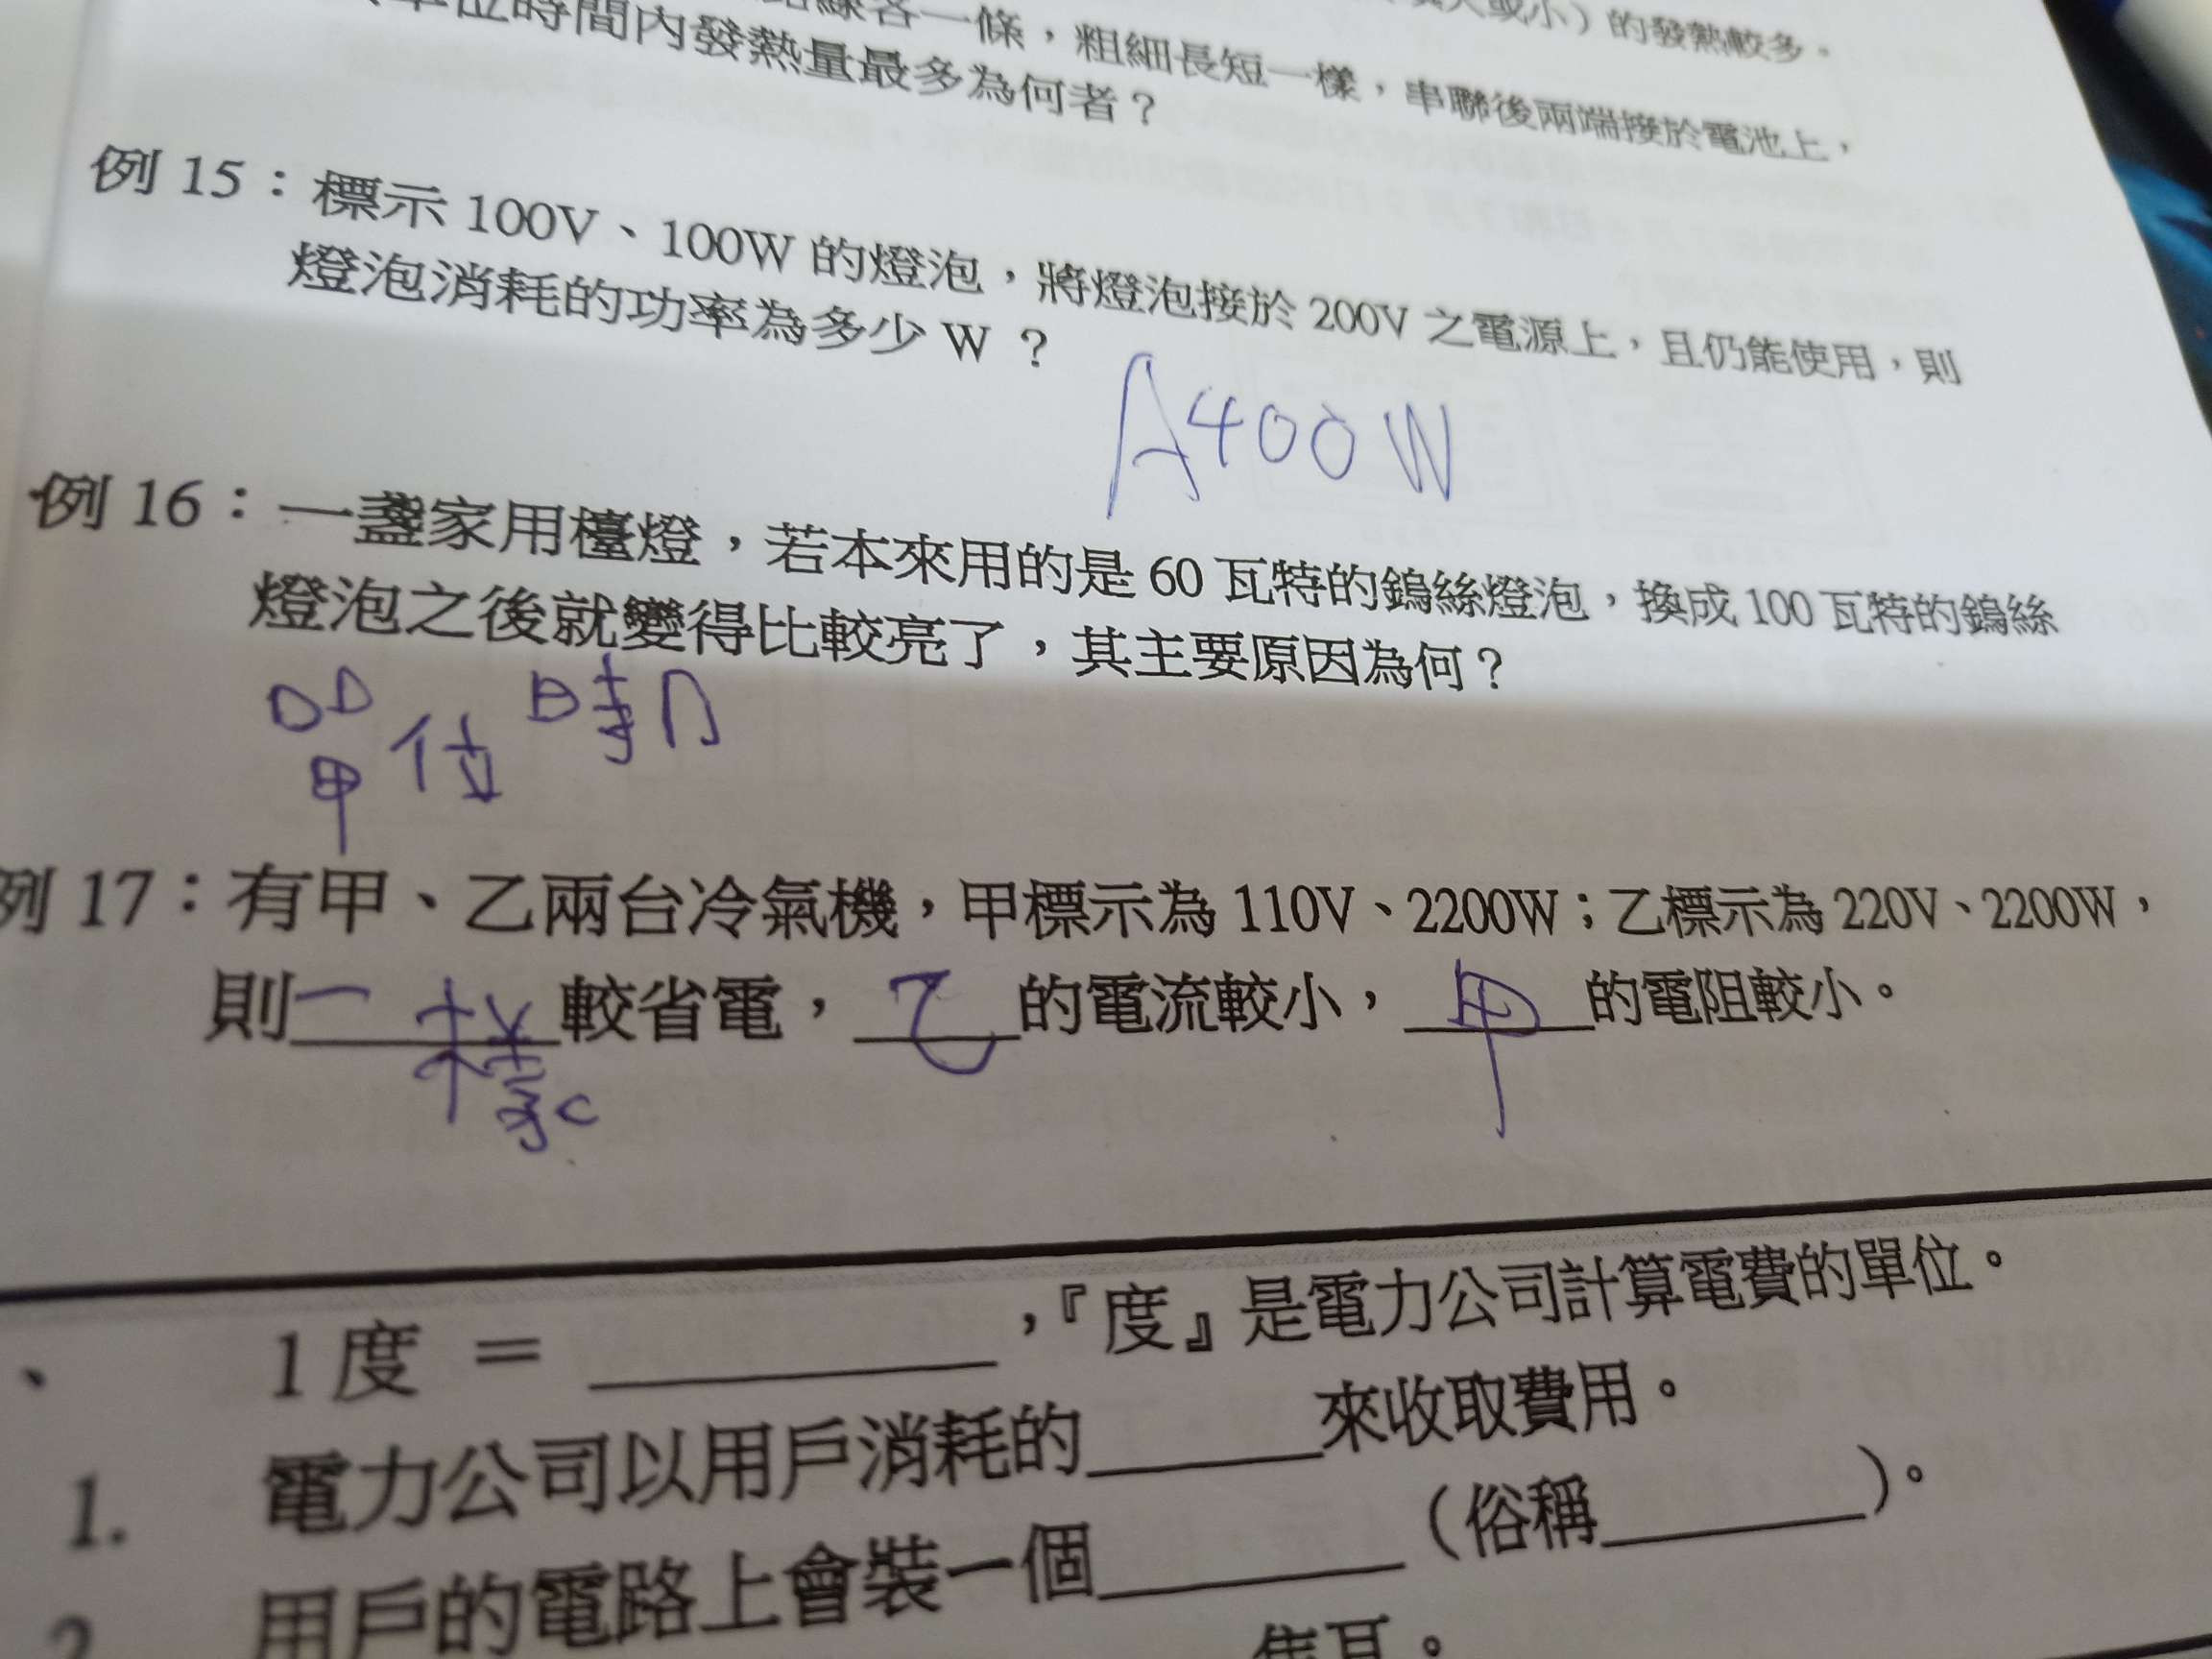 或小)的發熱較多。
各一條,粗細長短一樣,串聯後兩端接於電池上,
單位時間內發熱量最多為何者?
例 15:標示 100V、100W 的燈泡,將燈泡接於 200V 之電源上,且仍能使用,則
燈泡消耗的功率為多少 W ?
A400W
例 16:一盞家用檯燈,若本來用的是 60 瓦特的鎢絲燈泡,換成 100 瓦特的鎢絲
燈泡之後就變得比較亮了,其主要原因為何?
單位時內
例 17:有甲、乙兩台冷氣機,甲標示為 110V、2200W;乙標示為 220V、2200W,
則一樣較省電,乙的電流較小,甲的電阻較小。
、 1 度 = ________,『度』是電力公司計算電費的單位。
1. 電力公司以用戶消耗的______來收取費用。
2 用戶的電路上會裝一個________(俗稱_______)。